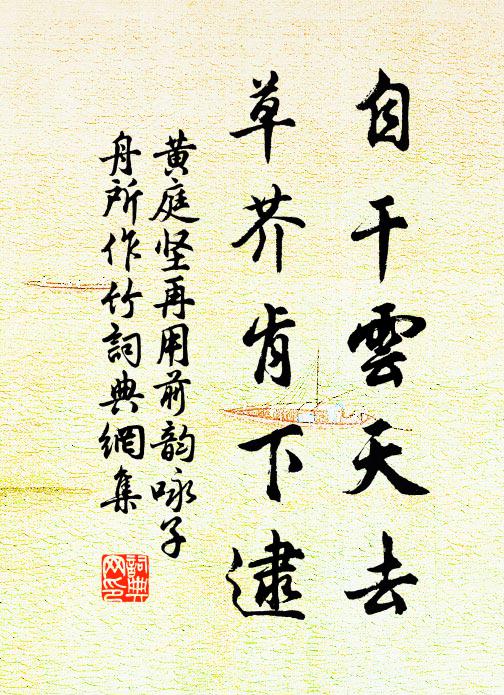 自干雲天去
草芥肯下逮
黄庭坚再用前韵咏子
舟所作竹詞典網集
詞典网印